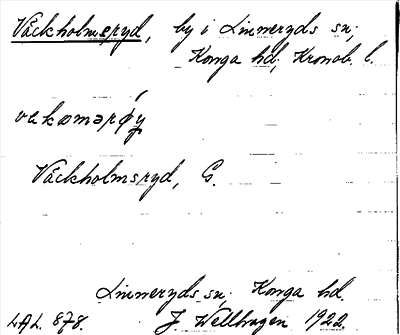 Väckholmsryd, by i Linneryds sn;
Konga hd; Kronob. l.
vekomərǿy
Väckholmsryd, G.
Linneryds sn; Konga hd.
LAL. 878. J. Wellhagen 1922